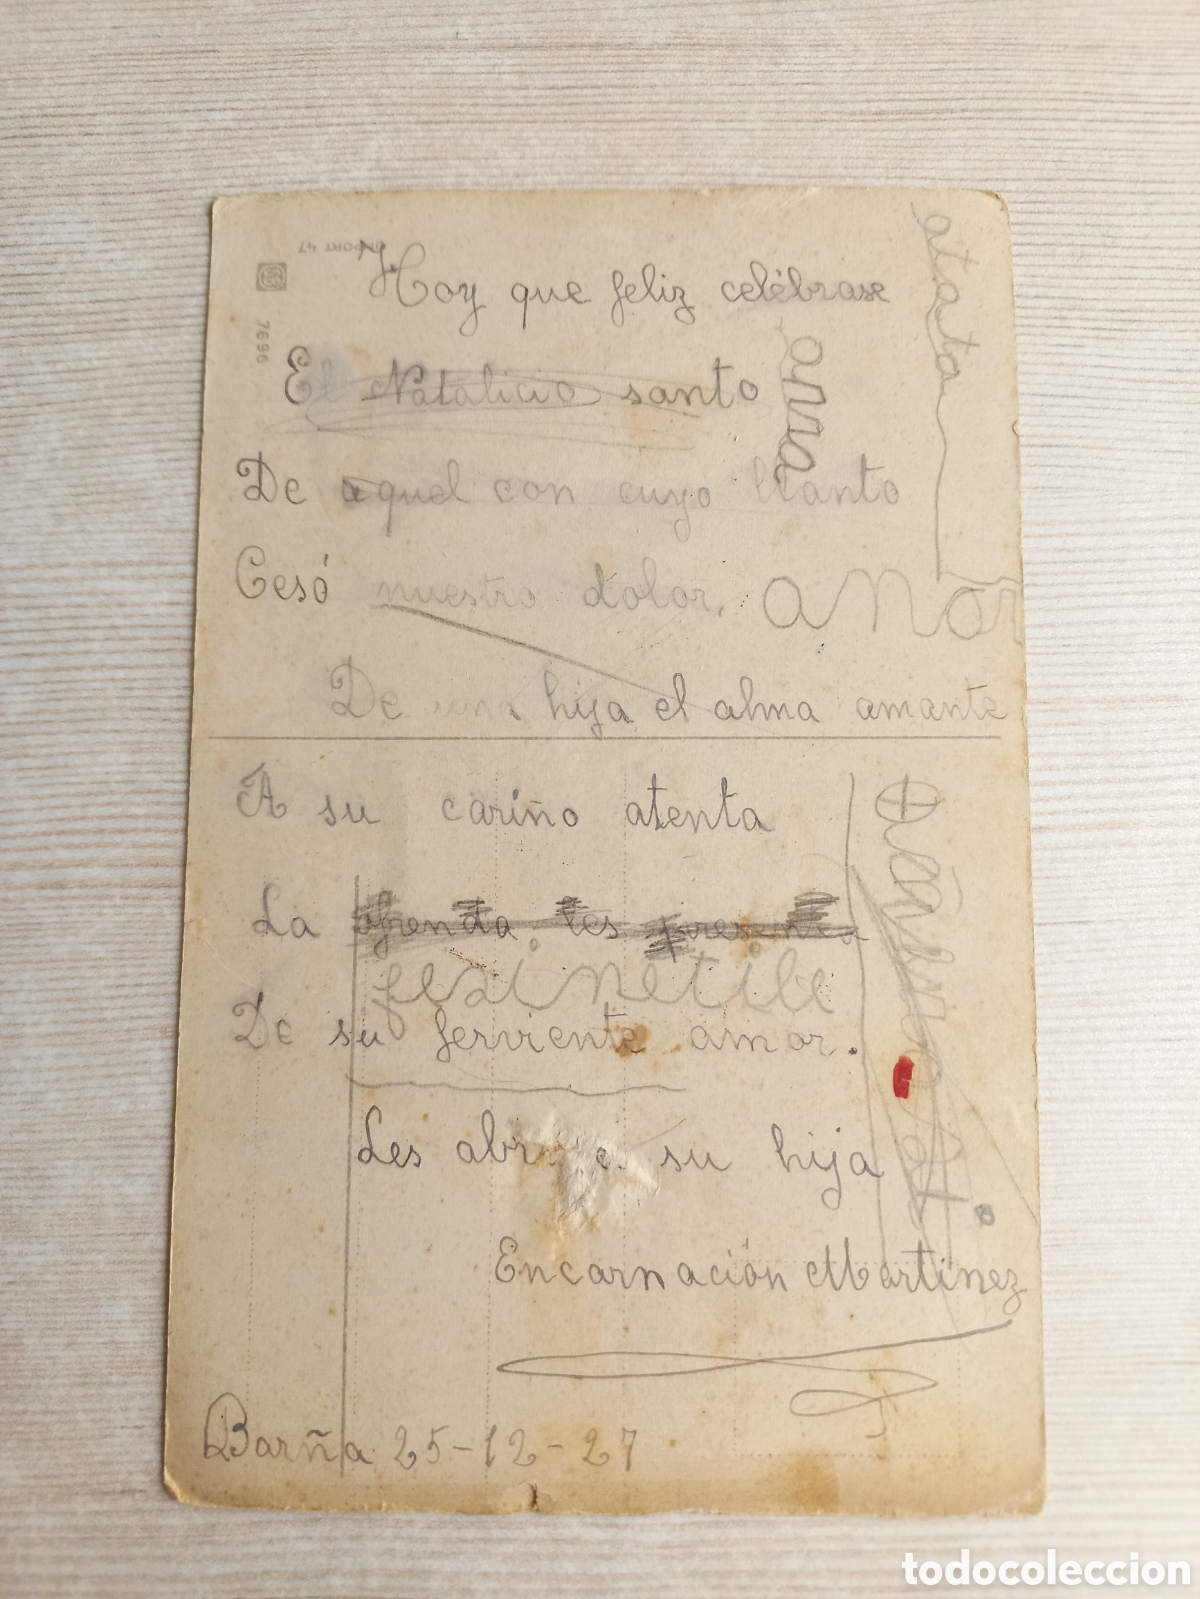 Hoy que feliz celébrase
El Natalicio santo
De aquel con cuyo llanto
Cesó nuestro dolor.
De una hija el alma amante
A su cariño atenta
La ofrenda les presenta
De su ferviente amor.
Les abraza su hija
Encarnación Martinez
Barña 25-12-27
7696
atata
anra
amor
todocoleccion